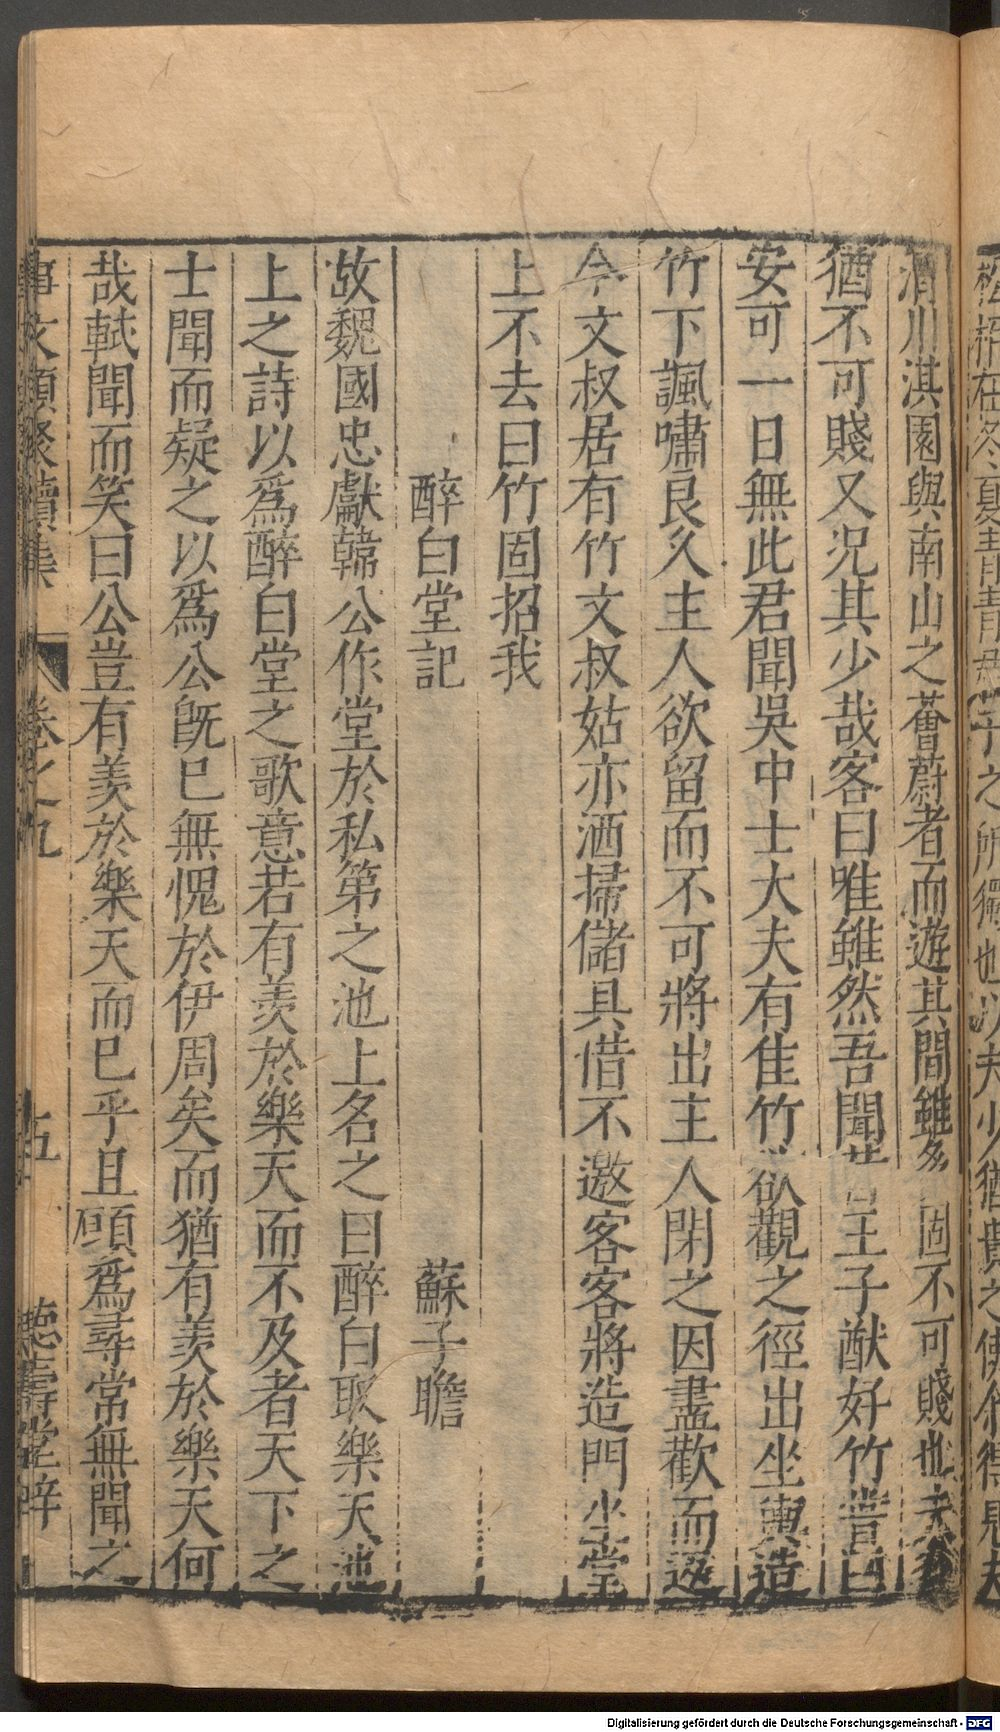 渭川淇園與南山之薈蔚者而遊其間雖多固不可賤也夫多
猶不可賤又況其少哉客曰唯雖然吾聞昔王子猷好竹嘗曰
安可一日無此君聞吳中士大夫有佳竹欲觀之徑出坐輿造
竹下諷嘯良久主人欲留而不可將出主人閉之因盡歡而返
今文叔居有竹文叔姑亦洒掃儲具借不邀客客將造門坐堂
上不去曰竹固招我
醉白堂記 蘇子瞻
故魏國忠獻韓公作堂於私第之池上名之曰醉白取樂天池
上之詩以爲醉白堂之歌意若有羨於樂天而不及者天下之
士聞而疑之以爲公旣已無愧於伊周矣而猶有羨於樂天何
哉軾聞而笑曰公豈有羨於樂天而已乎且願爲尋常無聞之
事文類聚續集 卷之九 五 德壽堂梓
Digitalisierung gefördert durch die Deutsche Forschungsgemeinschaft - DFG